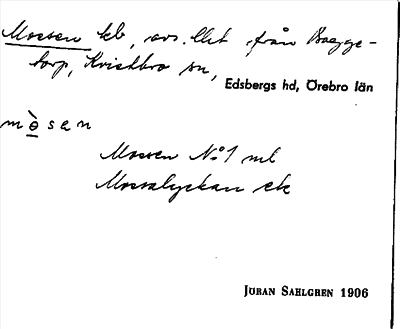 Mossen tkb, avs. Ut från Bagge-
torp, Kvistbro sn,
Edsbergs hd, Örebro län
mo̲̊̀sen
Mossen N:o 1 ml
Mosslyckan ek
JÖRAN SAHLGREN 1906